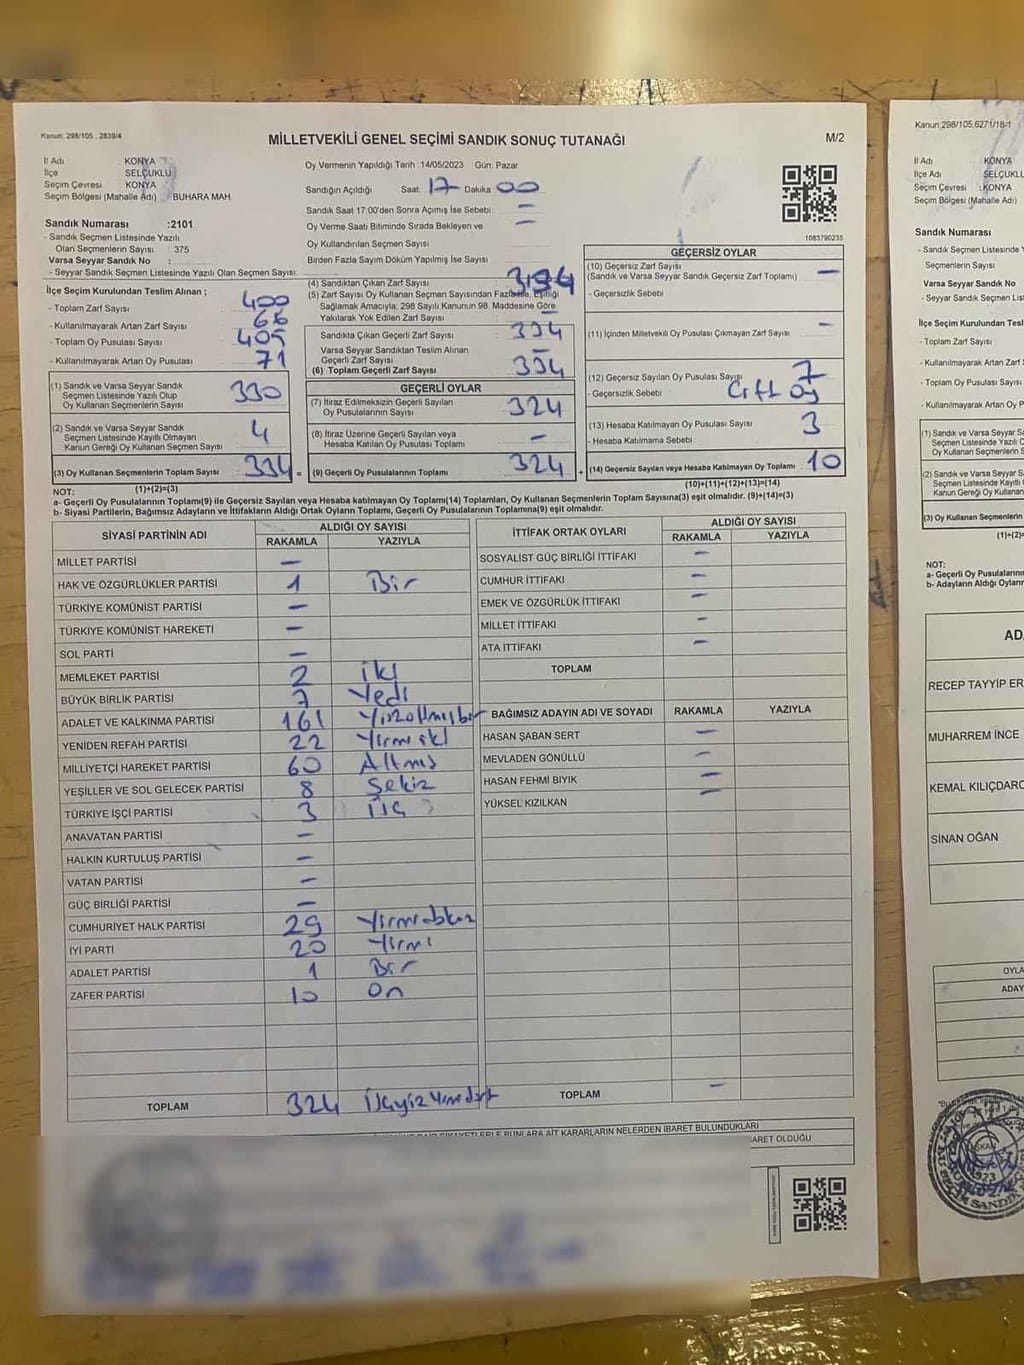 Kanun: 298/105 , 2839/4
MİLLETVEKİLİ GENEL SEÇİMİ SANDIK SONUÇ TUTANAĞI
M/2
İl Adı KONYA
İlçe SELÇUKLU
Seçim Çevresi KONYA
Seçim Bölgesi (Mahalle Adı) BUHARA MAH.
Sandık Numarası :2101
- Sandık Seçmen Listesinde Yazılı
Olan Seçmenlerin Sayısı : 375
Varsa Seyyar Sandık No :
- Seyyar Sandık Seçmen Listesinde Yazılı Olan Seçmen Sayısı:
Oy Vermenin Yapıldığı Tarih :14/05/2023 Gün: Pazar
Sandığın Açıldığı Saat: 17 Dakika 00
Sandık Saat 17:00'den Sonra Açımış İse Sebebi –
Oy Verme Saati Bitiminde Sırada Bekleyen ve –
Oy Kullandırılan Seçmen Sayısı
Birden Fazla Sayım Döküm Yapılmış İse Sayısı
1083790235
İlçe Seçim Kurulundan Teslim Alınan ;
- Toplam Zarf Sayısı 400
- Kullanılmayarak Artan Zarf Sayısı 66
- Toplam Oy Pusulası 405
- Kullanılmayarak Artan Oy Pusulası 71
(1) Sandık ve Varsa Seyyar Sandık
Seçmen Listesinde Yazılı Olup
Oy Kullanan Seçmenlerin Sayısı 330
(2) Sandık ve Varsa Seyyar Sandık
Seçmen Listesinde Kayıtlı Olmayan
Kanun Gereği Oy Kullanan Seçmen Sayısı 4
(3) Oy Kullanan Seçmenlerin Toplam Sayısı 334 =
(1)+(2)=(3)
(4) Sandıktan Çıkan Zarf Sayısı
(5) Zarf Sayısı Oy Kullanan Seçmen Sayısından Fazla İse, Eşitliği
Sağlamak Amacıyla: 298 Sayılı Kanunun 98. Maddesine Göre
Yakılarak Yok Edilen Zarf Sayısı –
Sandıkta Çıkan Geçerli Zarf Sayısı 334
Varsa Seyyar Sandıktan Teslim Alınan
Geçerli Zarf Sayısı –
(6) Toplam Geçerli Zarf Sayısı 334
GEÇERLİ OYLAR
(7) İtiraz Edilmeksizin Geçerli Sayılan
Oy Pusulalarının Sayısı 324
(8) İtiraz Üzerine Geçerli Sayılan veya
Hesaba Katılan Oy Pusulası Toplamı –
(9) Geçerli Oy Pusulalarının Toplamı 324 +
GEÇERSİZ OYLAR
(10) Geçersiz Zarf Sayısı –
(Sandık ve Varsa Seyyar Sandık Geçersiz Zarf Toplamı)
- Geçersizlik Sebebi
(11) İçinden Milletvekili Oy Pusulası Çıkmayan Zarf Sayısı –
(12) Geçersiz Sayılan Oy Pusulası Sayısı 7
- Geçersizlik Sebebi Çift Oy
(13) Hesaba Katılmayan Oy Pusulası Sayısı 3
- Hesaba Katılmama Sebebi
(14) Geçersiz Sayılan veya Hesaba Katılmayan Oy Toplamı 10
(10)+(11)+(12)+(13)=(14)
NOT:
a- Geçerli Oy Pusulalarının Toplamı(9) ile Geçersiz Sayılan veya Hesaba katılmayan Oy Toplamı(14) Toplamları, Oy Kullanan Seçmenlerin Toplam Sayısına(3) eşit olmalıdır. (9)+(14)=(3)
b- Siyasi Partilerin, Bağımsız Adayların ve İttifakların Aldığı Ortak Oyların Toplamı, Geçerli Oy Pusulalarının Toplamına(9) eşit olmalıdır.
SİYASİ PARTİNİN ADI ALDIĞI OY SAYISI
RAKAMLA YAZIYLA
MİLLET PARTİSİ –
HAK VE ÖZGÜRLÜKLER PARTİSİ 1 Bir
TÜRKİYE KOMÜNİST PARTİSİ –
TÜRKİYE KOMÜNİST HAREKETİ –
SOL PARTİ –
MEMLEKET PARTİSİ 2 iki
BÜYÜK BİRLİK PARTİSİ 7 Yedi
ADALET VE KALKINMA PARTİSİ 161 Yüzaltmışbir
YENİDEN REFAH PARTİSİ 22 Yirmiiki
MİLLİYETÇİ HAREKET PARTİSİ 60 Altmış
YEŞİLLER VE SOL GELECEK PARTİSİ 8 Sekiz
TÜRKİYE İŞÇİ PARTİSİ 3 Üç
ANAVATAN PARTİSİ –
HALKIN KURTULUŞ PARTİSİ –
VATAN PARTİSİ –
GÜÇ BİRLİĞİ PARTİSİ –
CUMHURİYET HALK PARTİSİ 29 Yirmidokuz
İYİ PARTİ 20 Yirmi
ADALET PARTİSİ 1 Bir
ZAFER PARTİSİ 10 On
TOPLAM 324 Üçyüzyirmidört
İTTİFAK ORTAK OYLARI ALDIĞI OY SAYISI
RAKAMLA YAZIYLA
SOSYALİST GÜÇ BİRLİĞİ İTTİFAKI –
CUMHUR İTTİFAKI –
EMEK VE ÖZGÜRLÜK İTTİFAKI –
MİLLET İTTİFAKI –
ATA İTTİFAKI –
TOPLAM
BAĞIMSIZ ADAYIN ADI VE SOYADI RAKAMLA YAZIYLA
HASAN ŞABAN SERT –
MEVLADEN GÖNÜLLÜ –
HASAN FEHMİ BIYIK –
YÜKSEL KIZILKAN –
TOPLAM –
BUNLARA AİT KARARLARIN NELERDEN İBARET BULUNDUKLARI
BARET OLDUĞU
Kanun 298/105,6271/18-1
İl Adı KONYA
İlçe Adı SELÇUKL
Seçim Çevresi :KONYA
Seçim Bölgesi (Mahalle Adı)
Sandık Numarası
- Sandık Seçmen Listesinde Y
Seçmenlerin Sayısı
Varsa Seyyar Sandık No
- Seyyar Sandık Seçmen Lis
İlçe Seçim Kurulundan Tesl
- Toplam Zarf Sayısı
- Kullanılmayarak Artan Zarf
- Toplam Oy Pusulası
- Kullanılmayarak Artan Oy
(1) Sandık ve Varsa Seyyar S
Seçmen Listesinde Yazılı
Oy Kullanan Seçmenlerin
(2) Sandık ve Varsa Seyyar
Seçmen Listesinde Kayıtlı
Kanun Gereği Oy Kullanan
(3) Oy Kullanan Seçmenlerin
(1)+(2)=
NOT:
a- Geçerli Oy Pusulalarını
b- Adayların Aldığı Oyların
AD
RECEP TAYYİP ER
MUHARREM İNCE
KEMAL KILIÇDARO
SİNAN OĞAN
OYLA
ADAY